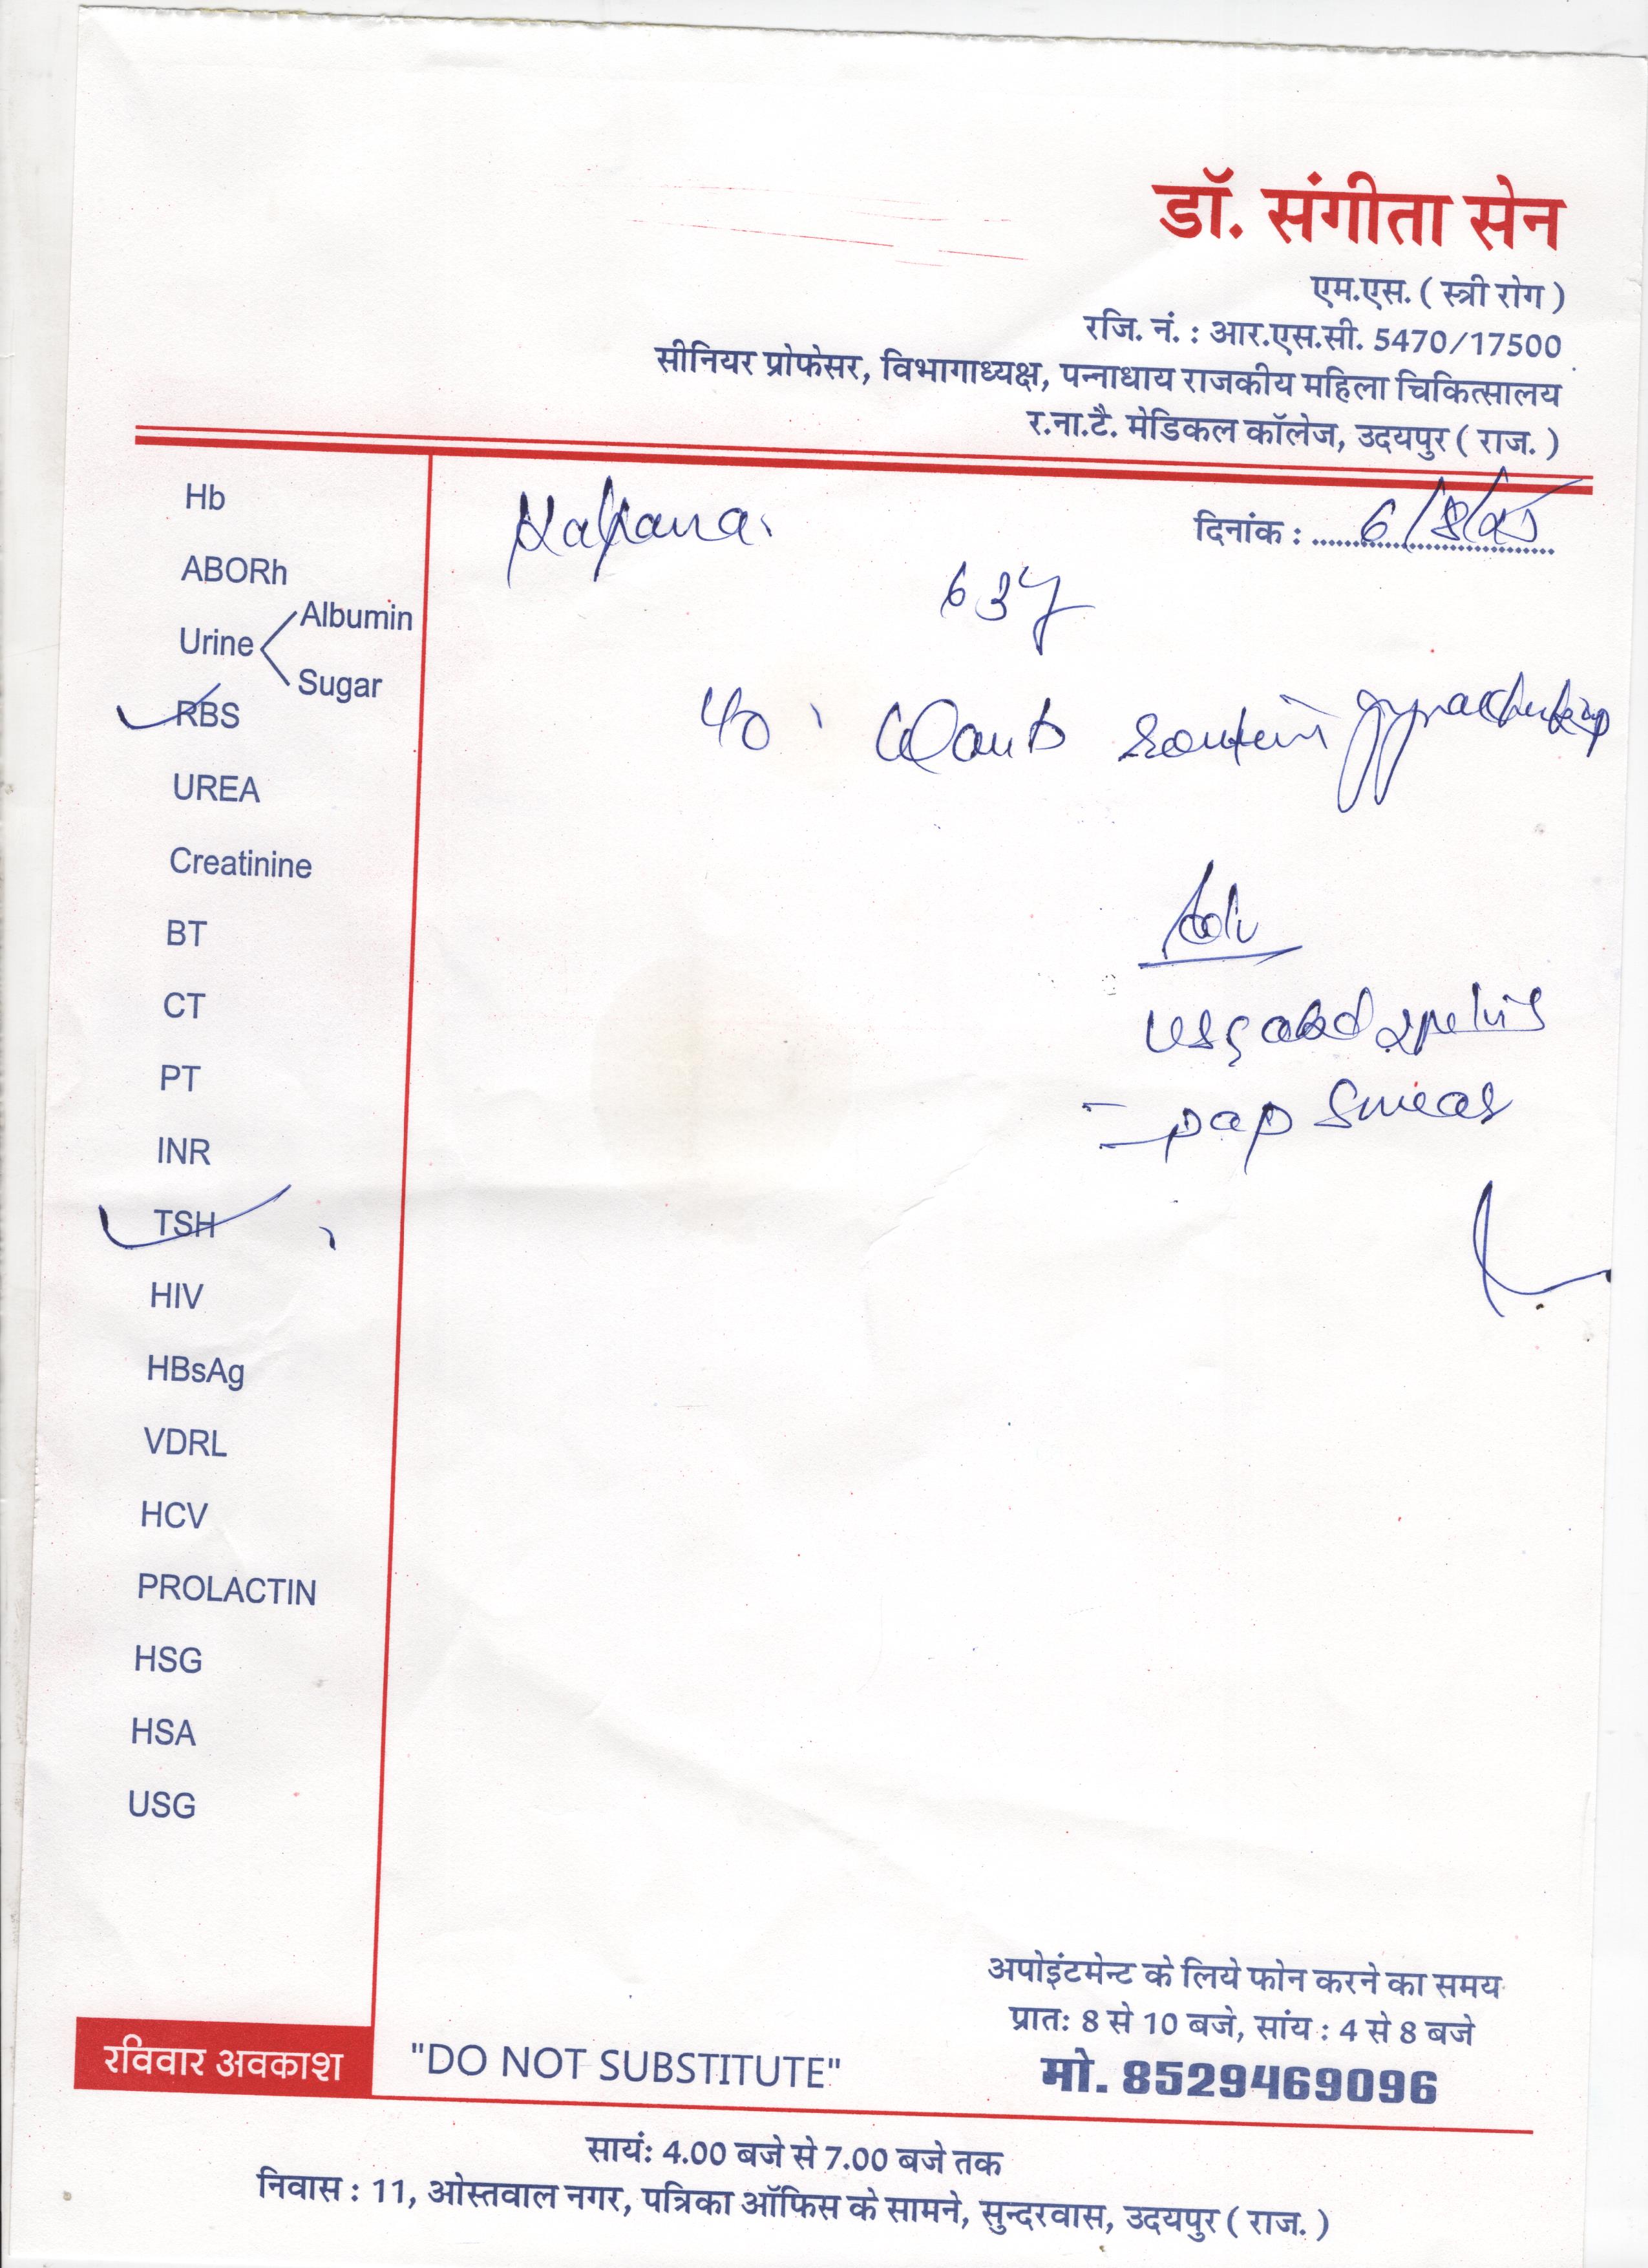 डॉ. संगीता सेन
एम.एस. ( स्त्री रोग )
रजि. नं. : आर.एस.सी. 5470/17500
सीनियर प्रोफेसर, विभागाध्यक्ष, पन्नाधाय राजकीय महिला चिकित्सालय
र.ना.टै. मेडिकल कॉलेज, उदयपुर ( राज. )
Kalpana.
दिनांक : 6/8/25
63y
Wants routine
Adv
USG abd & pelvis
- pap smear
Hb
ABORh
Urine Albumin
Sugar
RBS
UREA
Creatinine
BT
CT
PT
INR
TSH
HIV
HBsAg
VDRL
HCV
PROLACTIN
HSG
HSA
USG
अपोइंटमेन्ट के लिये फोन करने का समय
प्रातः 8 से 10 बजे, सांय : 4 से 8 बजे
मो. 8529469096
रविवार अवकाश
"DO NOT SUBSTITUTE"
सायं: 4.00 बजे से 7.00 बजे तक
निवास : 11, ओस्तवाल नगर, पत्रिका ऑफिस के सामने, सुन्दरवास, उदयपुर ( राज. )